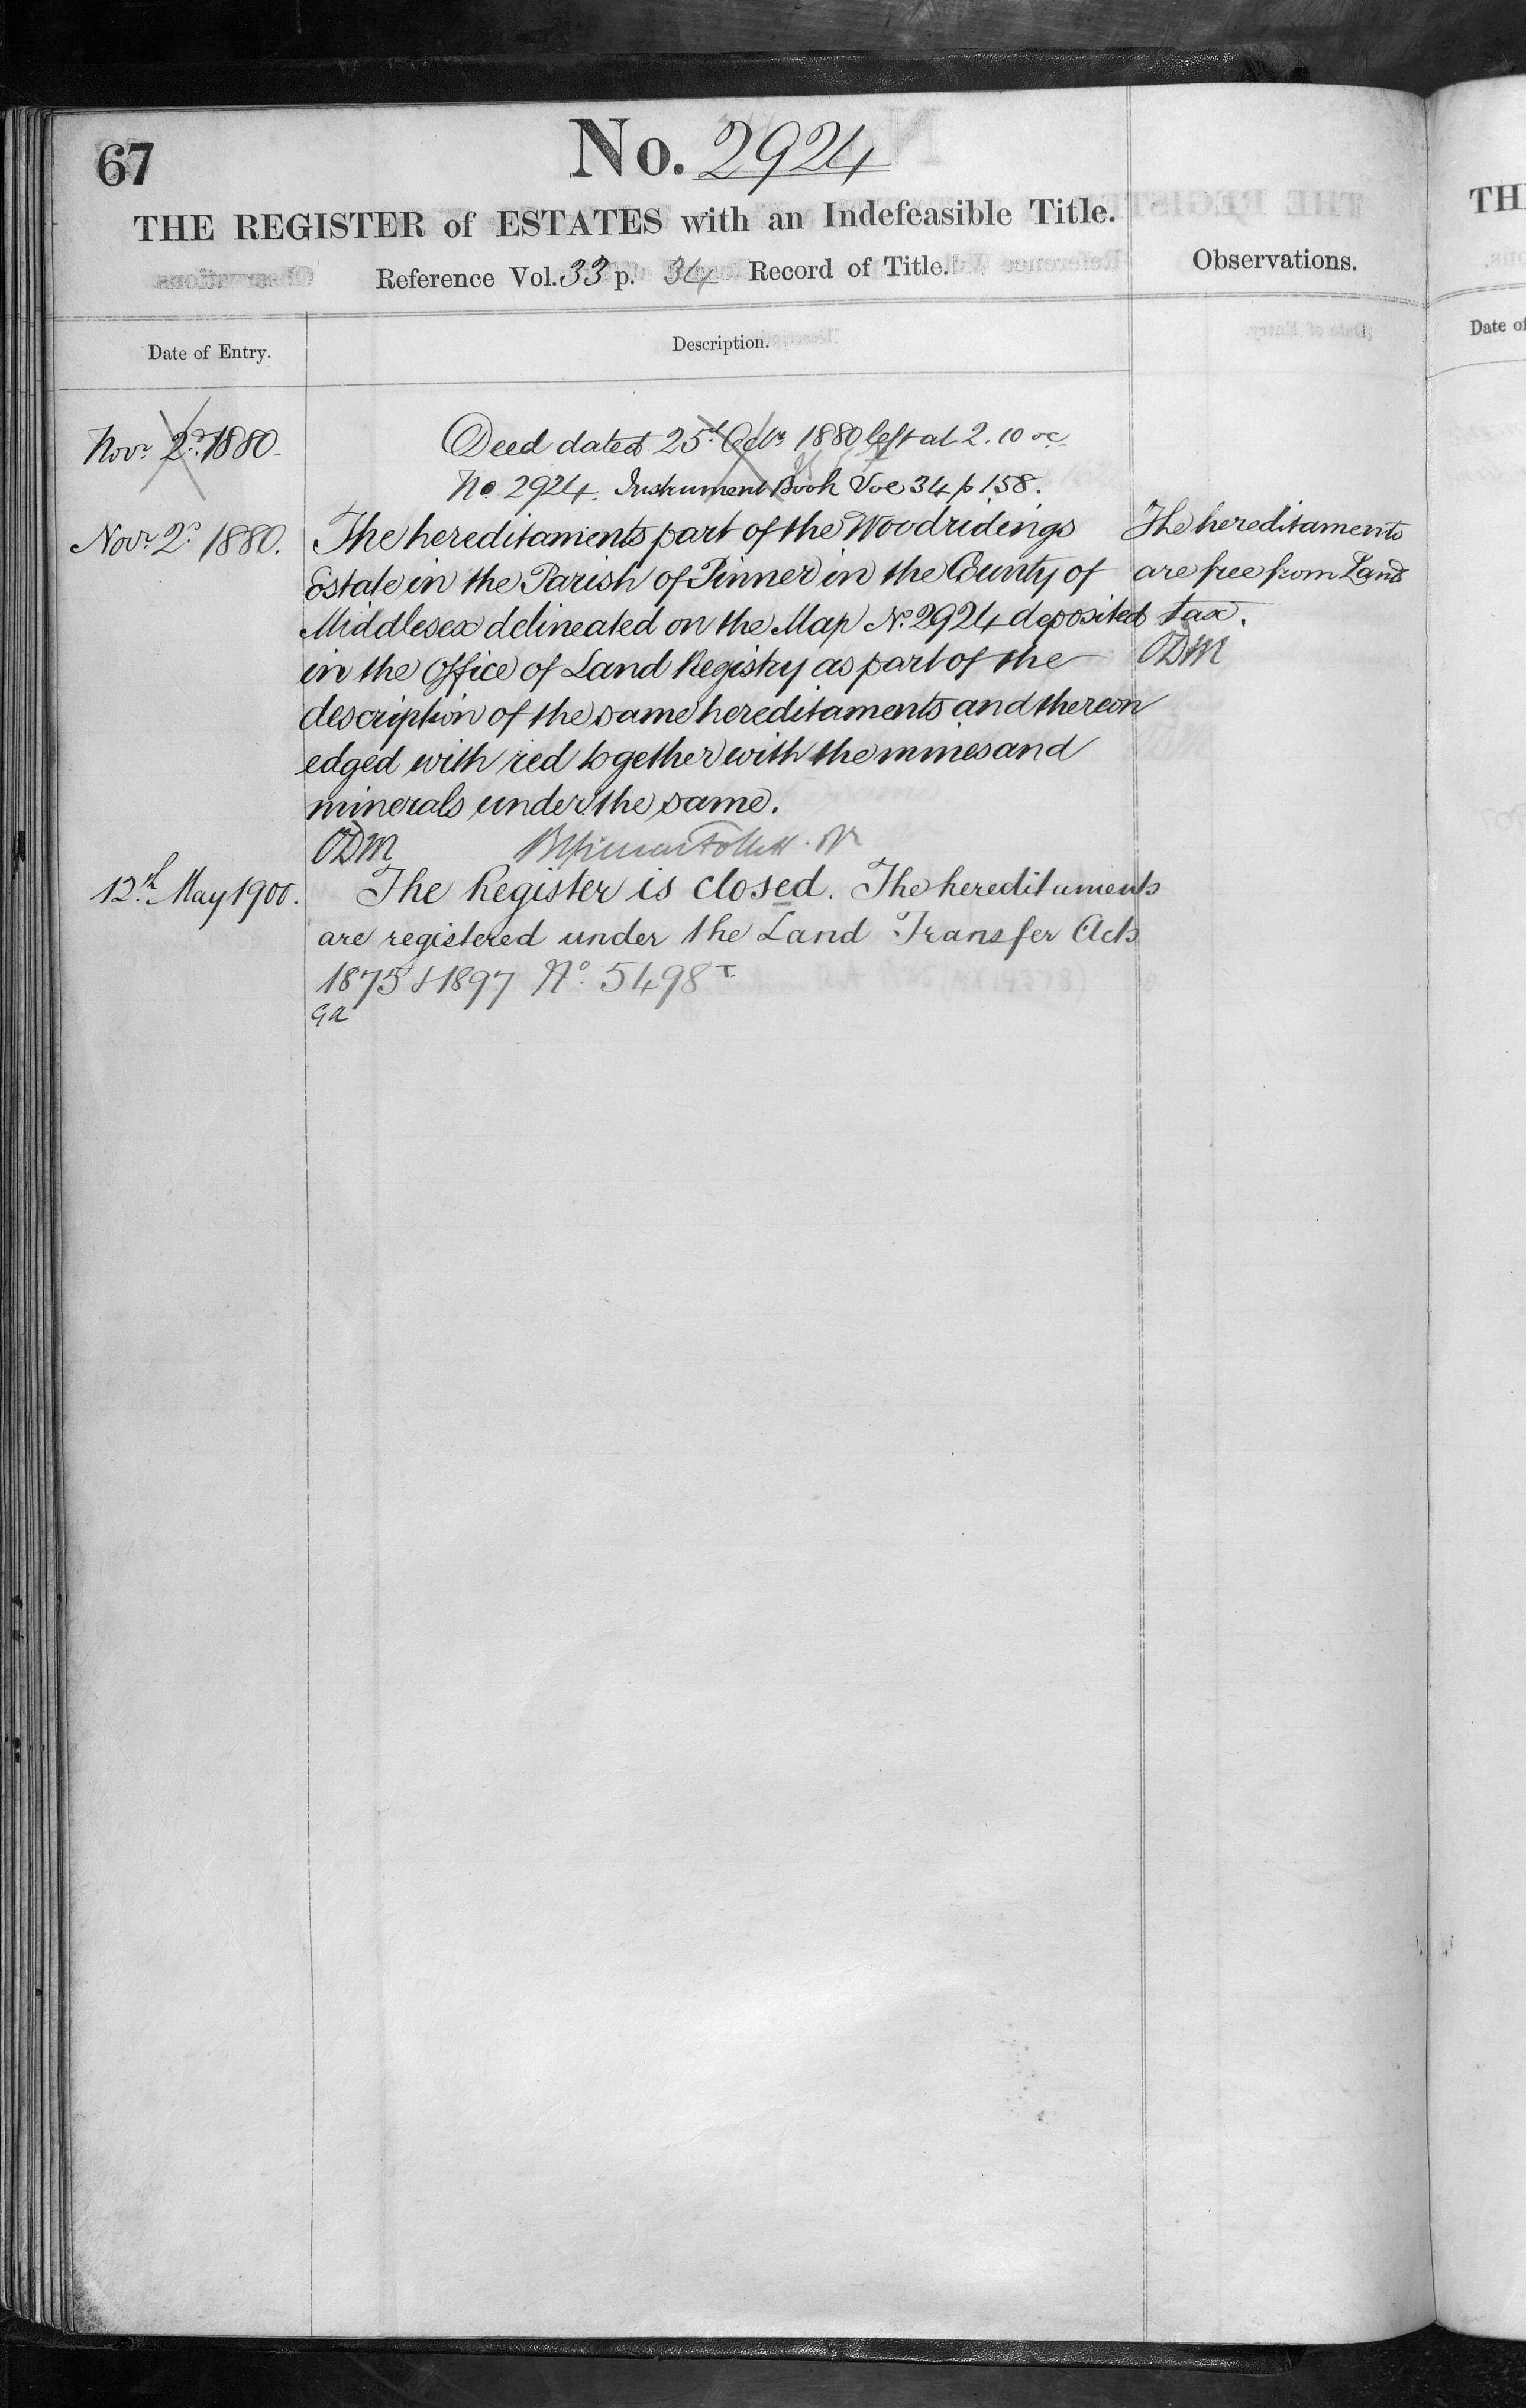 67
No. 2924
THE REGISTER of ESTATES with an Indefeasible Title.
Reference Vol. 33 p. 34 Record of Title.
Observations.
Date of Entry.
Description.
Novr 2d 1880
Deed dated 25th Octr 1880 left at 2.10 oc
No 2924. Instrument Book Vol 34 p 158.
Novr 2d 1880.
The hereditaments part of the Woodridings
Estate in the Parish of Pinner in the County of
Middlesex delineated on the Map No. 2924 deposited
in the Office of Land Registry as part of the
description of the same hereditaments and thereon
edged with red together with the mines and
minerals under the same.
ODM
The hereditaments
are free from Land
tax.
ODM
12th May 1900.
The Register is closed. The hereditaments
are registered under the Land Transfer Acts
1875 & 1897 No. 5498 T
GA
TH
Date of